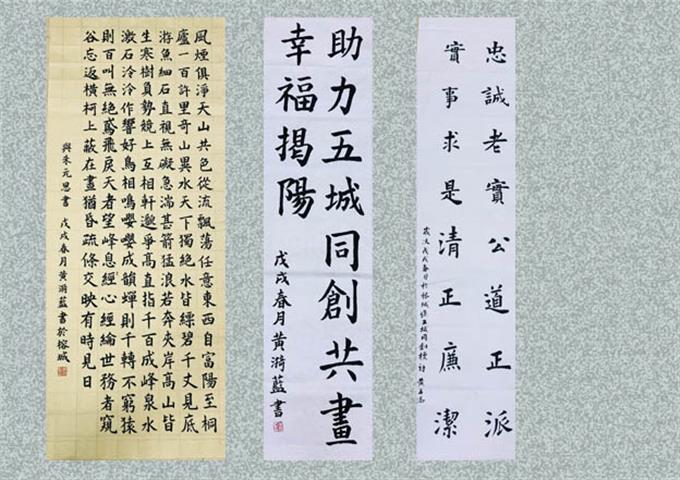 風煙俱淨天山共色從流飄蕩任意東西自富陽至桐
廬一百許里奇山異水天下獨絕水皆縹碧千丈見底
游魚細石直視無礙急湍甚箭猛浪若奔夾岸高山皆
生寒樹負勢競上互相軒邈爭高直指千百成峰泉水
激石泠泠作響好鳥相鳴嚶嚶成韻蟬則千轉不窮猿
則百叫無絕鳶飛戾天者望峰息經心經綸世務者窺
谷忘返橫柯上蔽在晝猶昏疏條交映有時見日
與朱元思書 戊戌春月黃漪藍書於榕城
助力五城同創共畫
幸福揭陽
戊戌春月黃漪藍書
忠誠老實公道正派
實事求是清正廉潔
歲次戊戌春月於榕城 五城同創